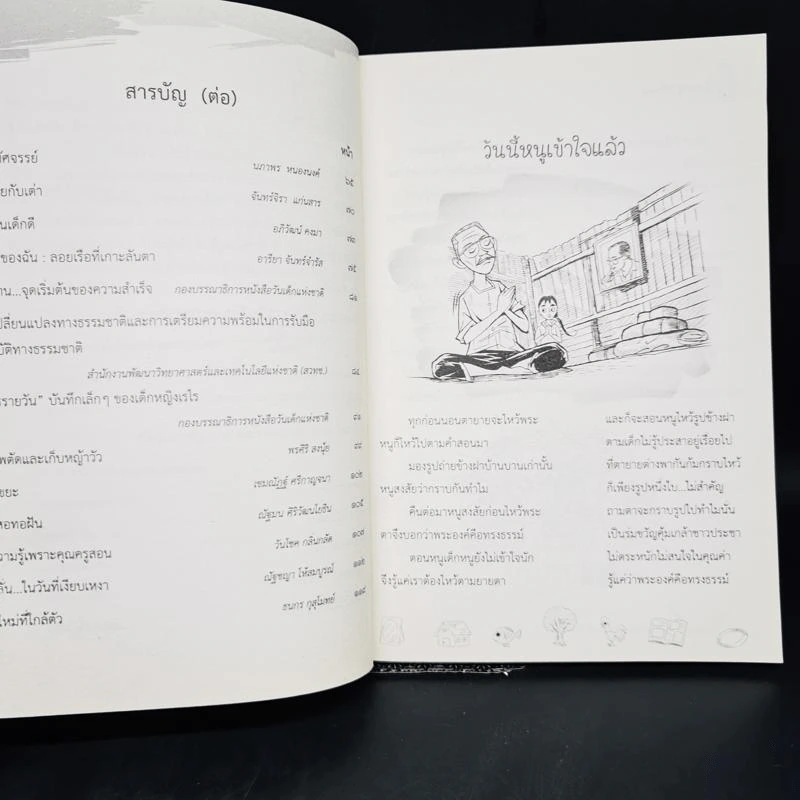 สารบัญ (ต่อ)
หน้า
ัศจรรย์ นภาพร หนองนงค์ ๖๕
ยกับเต่า จันทร์จิรา แก่นสาร ๗๐
นเด็กดี อภิวัฒน์ คงมา ๗๓
ของฉัน : ลอยเรือที่เกาะลันตา อาริยา จันทร์จำรัส ๗๕
าน...จุดเริ่มต้นของความสำเร็จ กองบรรณาธิการหนังสือวันเด็กแห่งชาติ ๘๑
ปลี่ยนแปลงทางธรรมชาติและการเตรียมความพร้อมในการรับมือ
บัติทางธรรมชาติ
สำนักงานพัฒนาวิทยาศาสตร์และเทคโนโลยีแห่งชาติ (สวทช.) ๘๔
รายวัน" บันทึกเล็กๆ ของเด็กหญิงเรไร
กองบรรณาธิการหนังสือวันเด็กแห่งชาติ ๙๑
พตัดและเก็บหญ้าวัว พรศิริ สงนุ้ย ๙๘
ขยะ เขมณัฏฐ์ ศรีกาญจนา ๑๐๒
อทอฝัน ณัฐมน ศิริวัฒนโยธิน ๑๐๕
วามรู้เพราะคุณครูสอน วันโชค กลิ่นกลัด ๑๐๗
ลั่น...ในวันที่เงียบเหงา ณัฐชญา โห้สมบูรณ์ ๑๑๒
ใหม่ที่ใกล้ตัว ธนกร กุสุโมทย์ ๑๑๘
วันนี้หนูเข้าใจแล้ว
ทุกก่อนนอนตายายจะไหว้พระ และก็จะสอนหนูไหว้รูปข้างฝา
หนูก็ไหว้ไปตามคำสอนมา ตามเด็กไม่รู้ประสาอยู่เรื่อยไป
มองรูปถ่ายข้างฝาบ้านบานเก่านั้น ที่ตายายต่างพากันก้มกราบไหว้
หนูสงสัยว่ากราบกันทำไม ก็เพียงรูปหนึ่งใบ...ไม่สำคัญ
คืนต่อมาหนูสงสัยก่อนไหว้พระ ถามตาจะกราบรูปไปทำไมนั่น
ตาจึงบอกว่าพระองค์คือทรงธรรม์ เป็นร่มขวัญคุ้มเกล้าชาวประชา
ตอนหนูเด็กหนูยังไม่เข้าใจนัก ไม่ตระหนักไม่สนใจในคุณค่า
จึงรู้แค่เราต้องไหว้ตามยายตา รู้แค่ว่าพระองค์คือทรงธรรม์